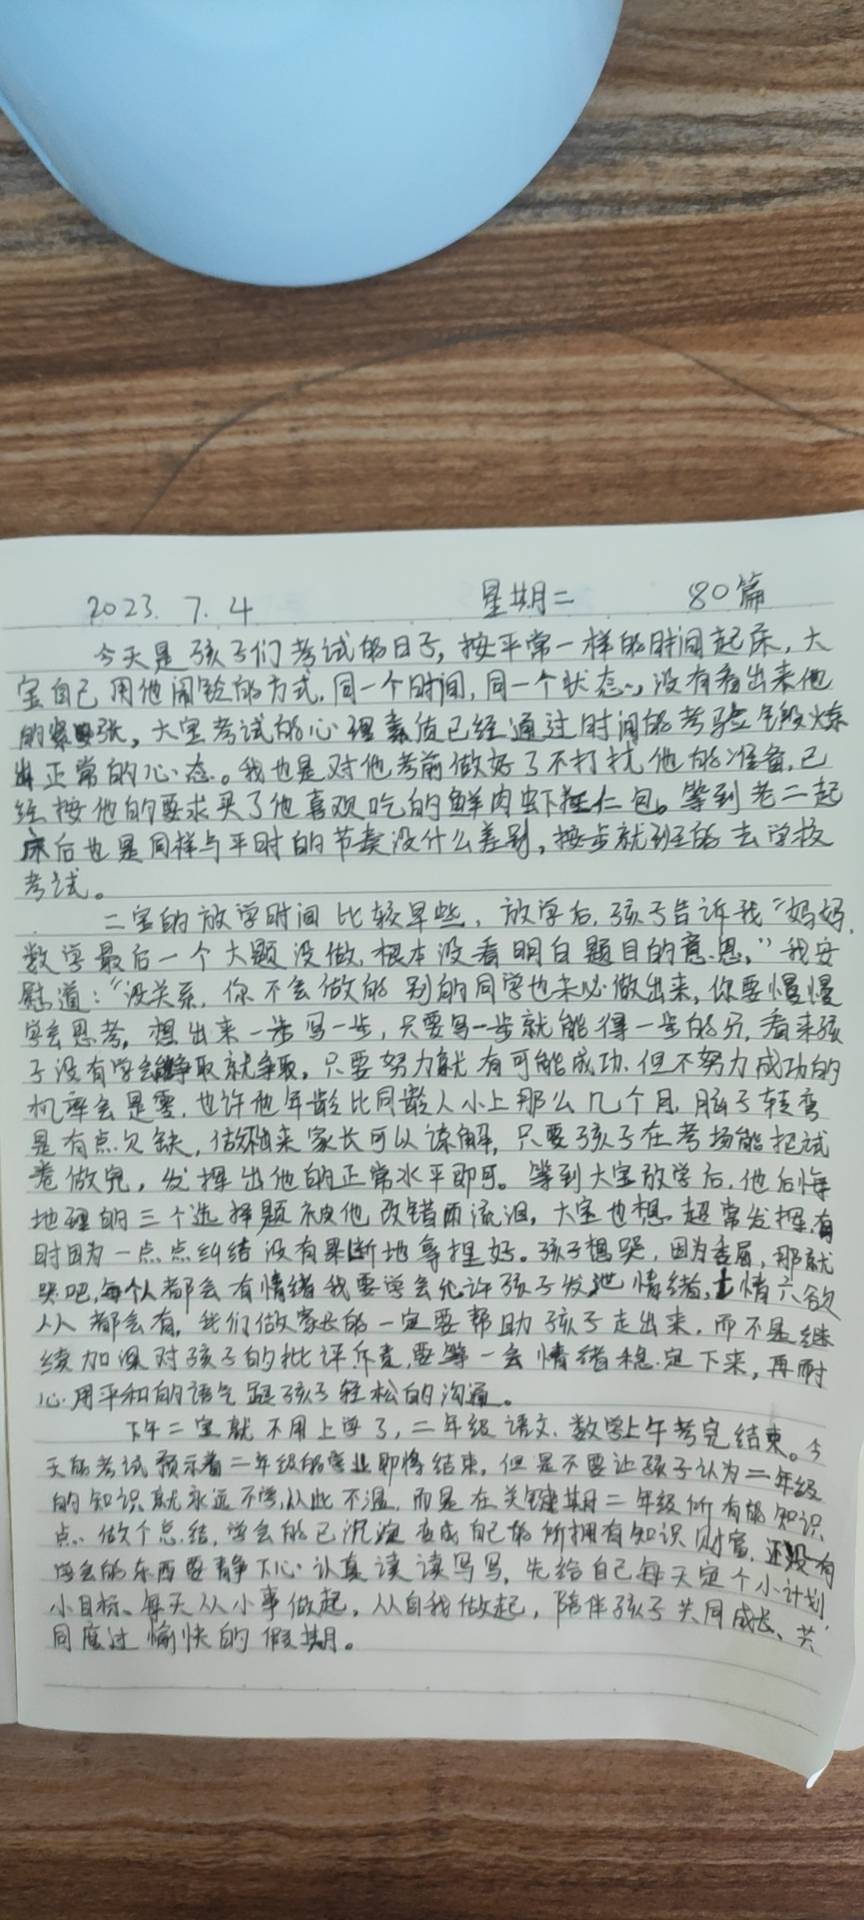 2023. 7. 4 星期二 80篇
今天是孩子们考试的日子,按平常一样的时间起床,大
宝自己用他闹铃的方式,同一个时间,同一个状态,没有看出来他
的紧张,大宝考试的心理素质已经通过时间的考验锻炼
出正常的心态。我也是对他考前做好了不打扰他的准备,已
经按他的要求买了他喜欢吃的鲜肉虾仁包。等到老二起
床后也是同样与平时的节奏没什么差别,按步就班的去学校
考试。
二宝的放学时间比较早些,放学后,孩子告诉我“妈妈,
数学最后一个大题没做,根本没看明白题目的意思,”我安
慰道:“没关系,你不会做的别的同学也未必做出来,你要慢慢
学会思考,想出来一步写一步,只要写一步就能得一步的分,看来孩
子没有学会争取就争取,只要努力就有可能成功,但不努力成功的
机率会是零,也许他年龄比同龄人小上那么几个月,脑子转弯
是有点欠缺,做出来家长可以谅解,只要孩子在考场能把试
卷做完,发挥出他的正常水平即可。等到大宝放学后,他后悔
地理的三个选择题被他改错而流泪,大宝也想超常发挥,有
时因为一点点纠结没有果断地掌握好。孩子想哭,因为委屈,那就
哭吧,每个人都会有情绪我要学会允许孩子发泄情绪,七情六欲
人人都会有,我们做家长的一定要帮助孩子走出来,而不是继
续加深对孩子的批评斥责,要等一会情绪稳定下来,再耐
心用平和的语气跟孩子轻松的沟通。
下午二宝就不用上学了,二年级语文、数学上午考完结束。今
天的考试预示着二年级的学业即将结束,但是不要让孩子认为二年级
的知识就永远不学,从此不温,而是在关键期二年级所有的知识
点、做个总结,学会的已沉淀变成自己的所拥有知识财富,还没有
学会的东西要静下心认真读读写写,先给自己每天定个小计划,
小目标、每天从小事做起,从自我做起,陪伴孩子共同成长、共
同度过愉快的假期。